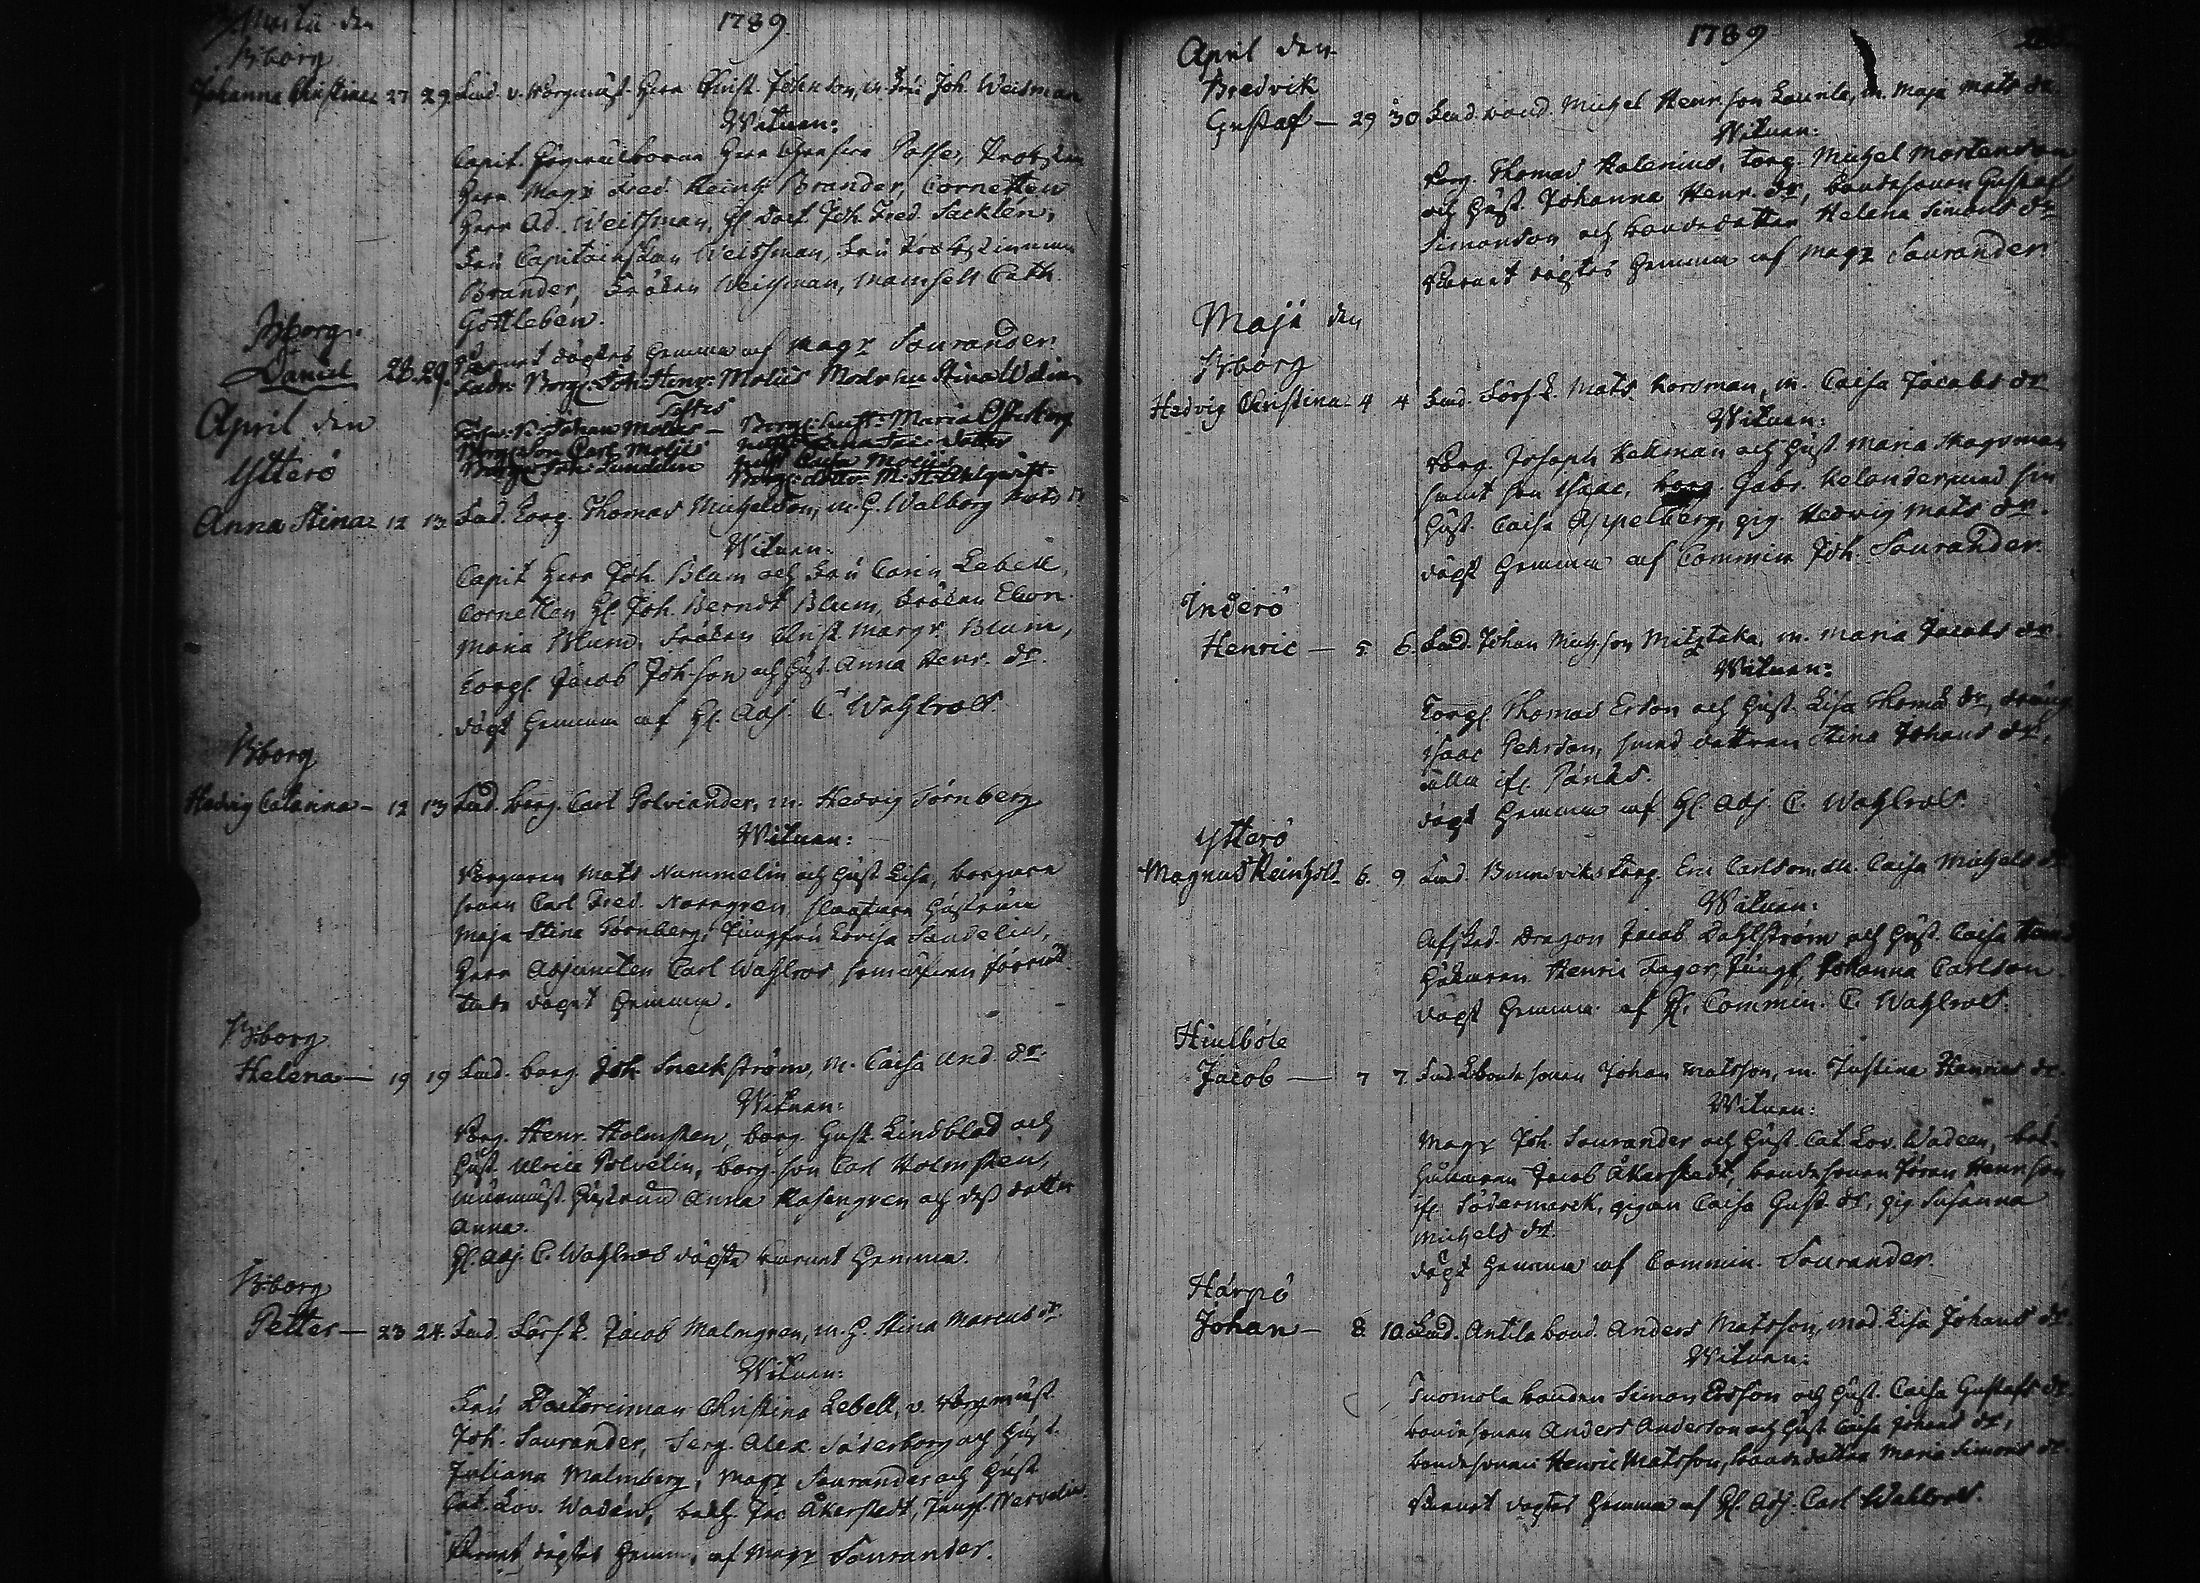 Martii den
1789
Biborg
Johanna Christina 27 29 Fad. v. Borgmäst. Herr Christ. Johnson, m. Fru Joh. Weisman
Witnen:
Capit. Herr Posse, Probsten
Herr Magr Fred. Reinh. Brander, Cornetten
Herr Ad. Weissman, H. Doct. Joh. Fred. Sacklén,
Fru Capitainskan Weissman, Fru Probstinnan
Brander, Fröken Weissman, Mamsell Cath.
Gottleben.
Barnet döptes hemma af Magr Saurander.
Biborg.
Daniel 28. 29. Fadr. Borg. Joh. Henr. Molius Modr. hu. Stina
Testes
Johan Molius - Borg. hust. Maria Österberg
Borg. Son Carl Molijs
Joh. Lundelin Caisa Molius
M. St. Ahlqvist
April den
Ytterö
Anna Stina 12 13 Fad. Torp. Thomas Michelson, m. H. Walborg Mats dr
Witnen.
Capit Herr Joh. Blum och Fru Carin Lebell,
Cornetten H. Joh. Berndt Blum, Fröken Eleon.
Maria Blum, Fröken Christ. Margr. Blum,
Torp. Jacob Joh.son och hust. Anna Henr. dr.
döpt hemma af H. Adj. C. Wahlros
Biborg
Hedvig Catarina - 12 13 Fad. borg. Carl Polviander, m. Hedvig Törnberg
Witnen:
Borgaren Mats Nummelin och hust. Lisa, borgare
sonen Carl Fred. Norngren, slagtare hustrun
Maja Stina Törnberg, Jungfru Lovisa Sandelin,
Herr Adjuncten Carl Wahlros, som äfven förrät-
tade döpet hemma.
Biborg
Helena - 19 19 Fad. borg. Joh. Sneckström, m. Caisa And. dr.
Witnen:
Borg. Henr. Holmsten, borg. Gust. Lindblad och
hust. Ulrica Polvelin, borg.son Carl Holmsten,
murmäst. hustrun Anna Rosengren och dess dotter
Anna.
H. Adj. C. Wahlros döpte barnet hemma.
Biborg
Petter - 23 24. Fad. Förs.k. Jacob Malmgren, m. H. Stina Marcus dr
Witnen:
Fru Doctorinnan Christina Lebell, v. Borgmäst.
Joh. Saurander, Serg. Alex. Söderborg och hust.
Juliana Malmberg, Magr Saurander och hust
Cat. Lov. Wadén, bokh. Jac. Åkerstedt, Jungf. Nervelin.
Barnet döptes hemma, af Magr Saurander.
1789
April den
Bredvik
Gustaf - 29 30 Fad. bond. Michel Henr.son Laurila, m. Maja Mats dr.
Witnen:
Borg. Thomas Kalenius, torp. Michel Mortenson
och hust. Johanna Henr. dr, bondesonen Gustaf
Simonson och bondedotter Helena Simons dr
Barnet döptes hemma af Magr Saurander.
Maji den
Biborg
Hedvig Christina - 4 4 Fad. Förs.k. Mats Korsman, m. Caisa Jacobs dr
Witnen:
Borg. Joseph Hakman och hust. Maria Skogsman
samt son Isaac, borg. Gabr. Kelander med sin
hust. Caisa Appelberg, pig. Hedvig Mats dr.
döpt hemma af Commin Joh. Saurander.
Inderö
Henric - 5 6. Fad. Johan Mich.son Mikstaka, m. Maria Jacobs dr.
Witnen:
Torp. Thomas Erson och hust. Lisa Thoms dr, dräng
Isaac Pehrson, smed dottren Stina Johans dr,
alla ifr. Pänäs.
döpt hemma af H. Adj. C. Wahlros.
Ytterö
Magnus Reinhold - 6. 9. Fad. Brunnviks torp. Eric Carlson, m. Caisa Michels dr
Witnen:
Afsked. Dragon Jacob Dahlström och hust. Caisa
Henric Fager, Jungf. Johanna Carlson.
döpt hemma af H. Commin. C. Wahlros.
Hiulböle
Jacob - 7 7. Fad. bondesonen Johan Matsson, m. Justina Henrics dr.
Witnen:
Magr Joh. Saurander och hust. Cat. Lov. Wadeen, bok-
hållaren Jacob Åkerstedt, bondesonen Jöran Henr.son
ifr. Södermarck, pigan Caisa Gust. dr, pig. Susanna
Michels dr.
döpt hemma af Commin. Saurander.
Härpö
Johan - 8 10. Fad. Antila bond. Anders Matsson, mod. Lisa Johans dr.
Witnen:
Tuomola bonden Simon Ersson och hust. Caisa Gustafs dr.
bondesonen Anders Anderson och hust. Caisa Johans dr,
bondesonen Henric Matsson, bondedotter Maria Simons dr.
Barnet döptes hemma af H. Adj. Carl Wahlros.